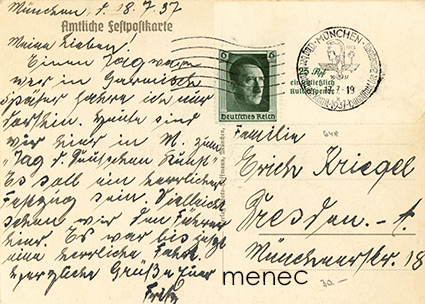 München, d. 18.7.37
Amtliche Festpostkarte
Meine Lieben!
Einen Tag waren
wir in Garmisch
später fahre ich nur
dorthin. Heute sind
wir hier in M. zum
"Tag d. Deutschen Kunst"
Es soll ein herrlicher
Festzug sein. Vielleicht
sehen wir den Führer
hier. Es war bis jetzt
eine herrliche Fahrt.
Herzliche Grüße Euer
Fritz
6 6
Deutsches Reich
MÜNCHEN
25 Rpf
einschließlich
Kulturspende
Familie
648
Erich Kriegel
Dresden.-A.
Münchnerstr. 18
30.-
menec